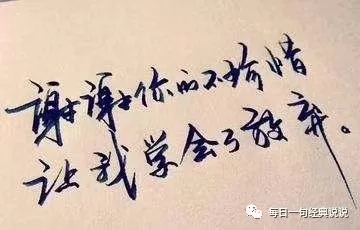 谢谢你的不珍惜
让我学会了放弃。
每日一句经典说说